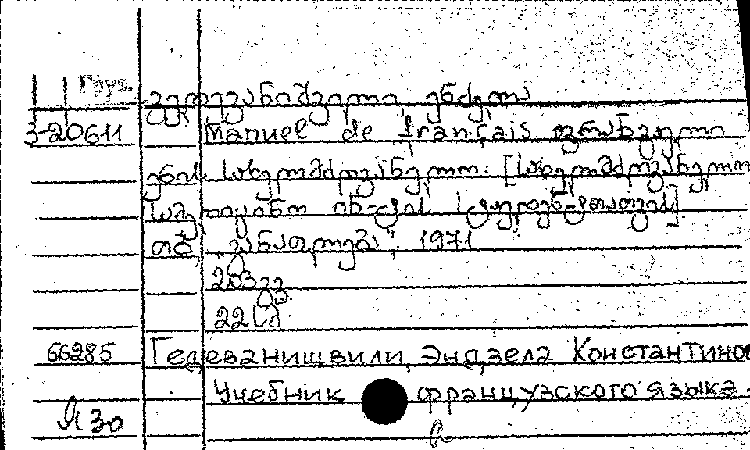 Груз.
გედევანიშვილი, ენძელა
3-20611 Manuel de français ფრანგული
ენის სახელმძღვანელო: [სახელმძღვანელო
სამედიცინო
თბ., "განათლება", 1971
203 გვ
66285 Гедеванишвили, Эндзела Константинов
Учебник французского языка
Я 30